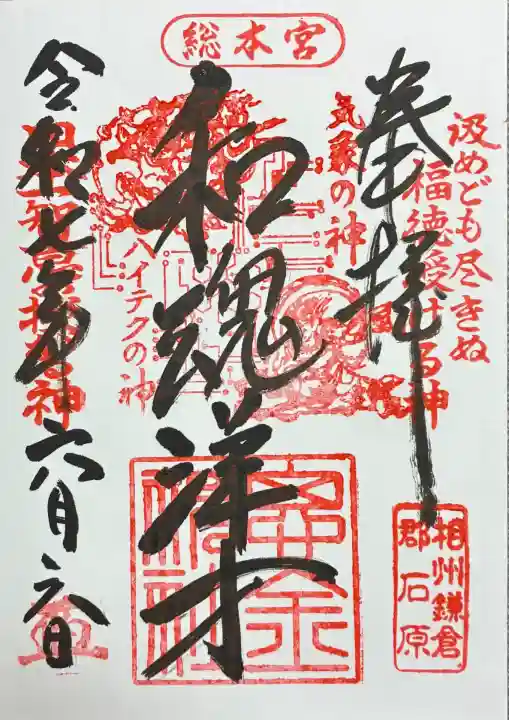 総本宮
汲めども尽きぬ
福徳授ける神
奉拝
気象の神
和魂洋才
ハイテクの神
令和七年六月
相州鎌倉
郡石原